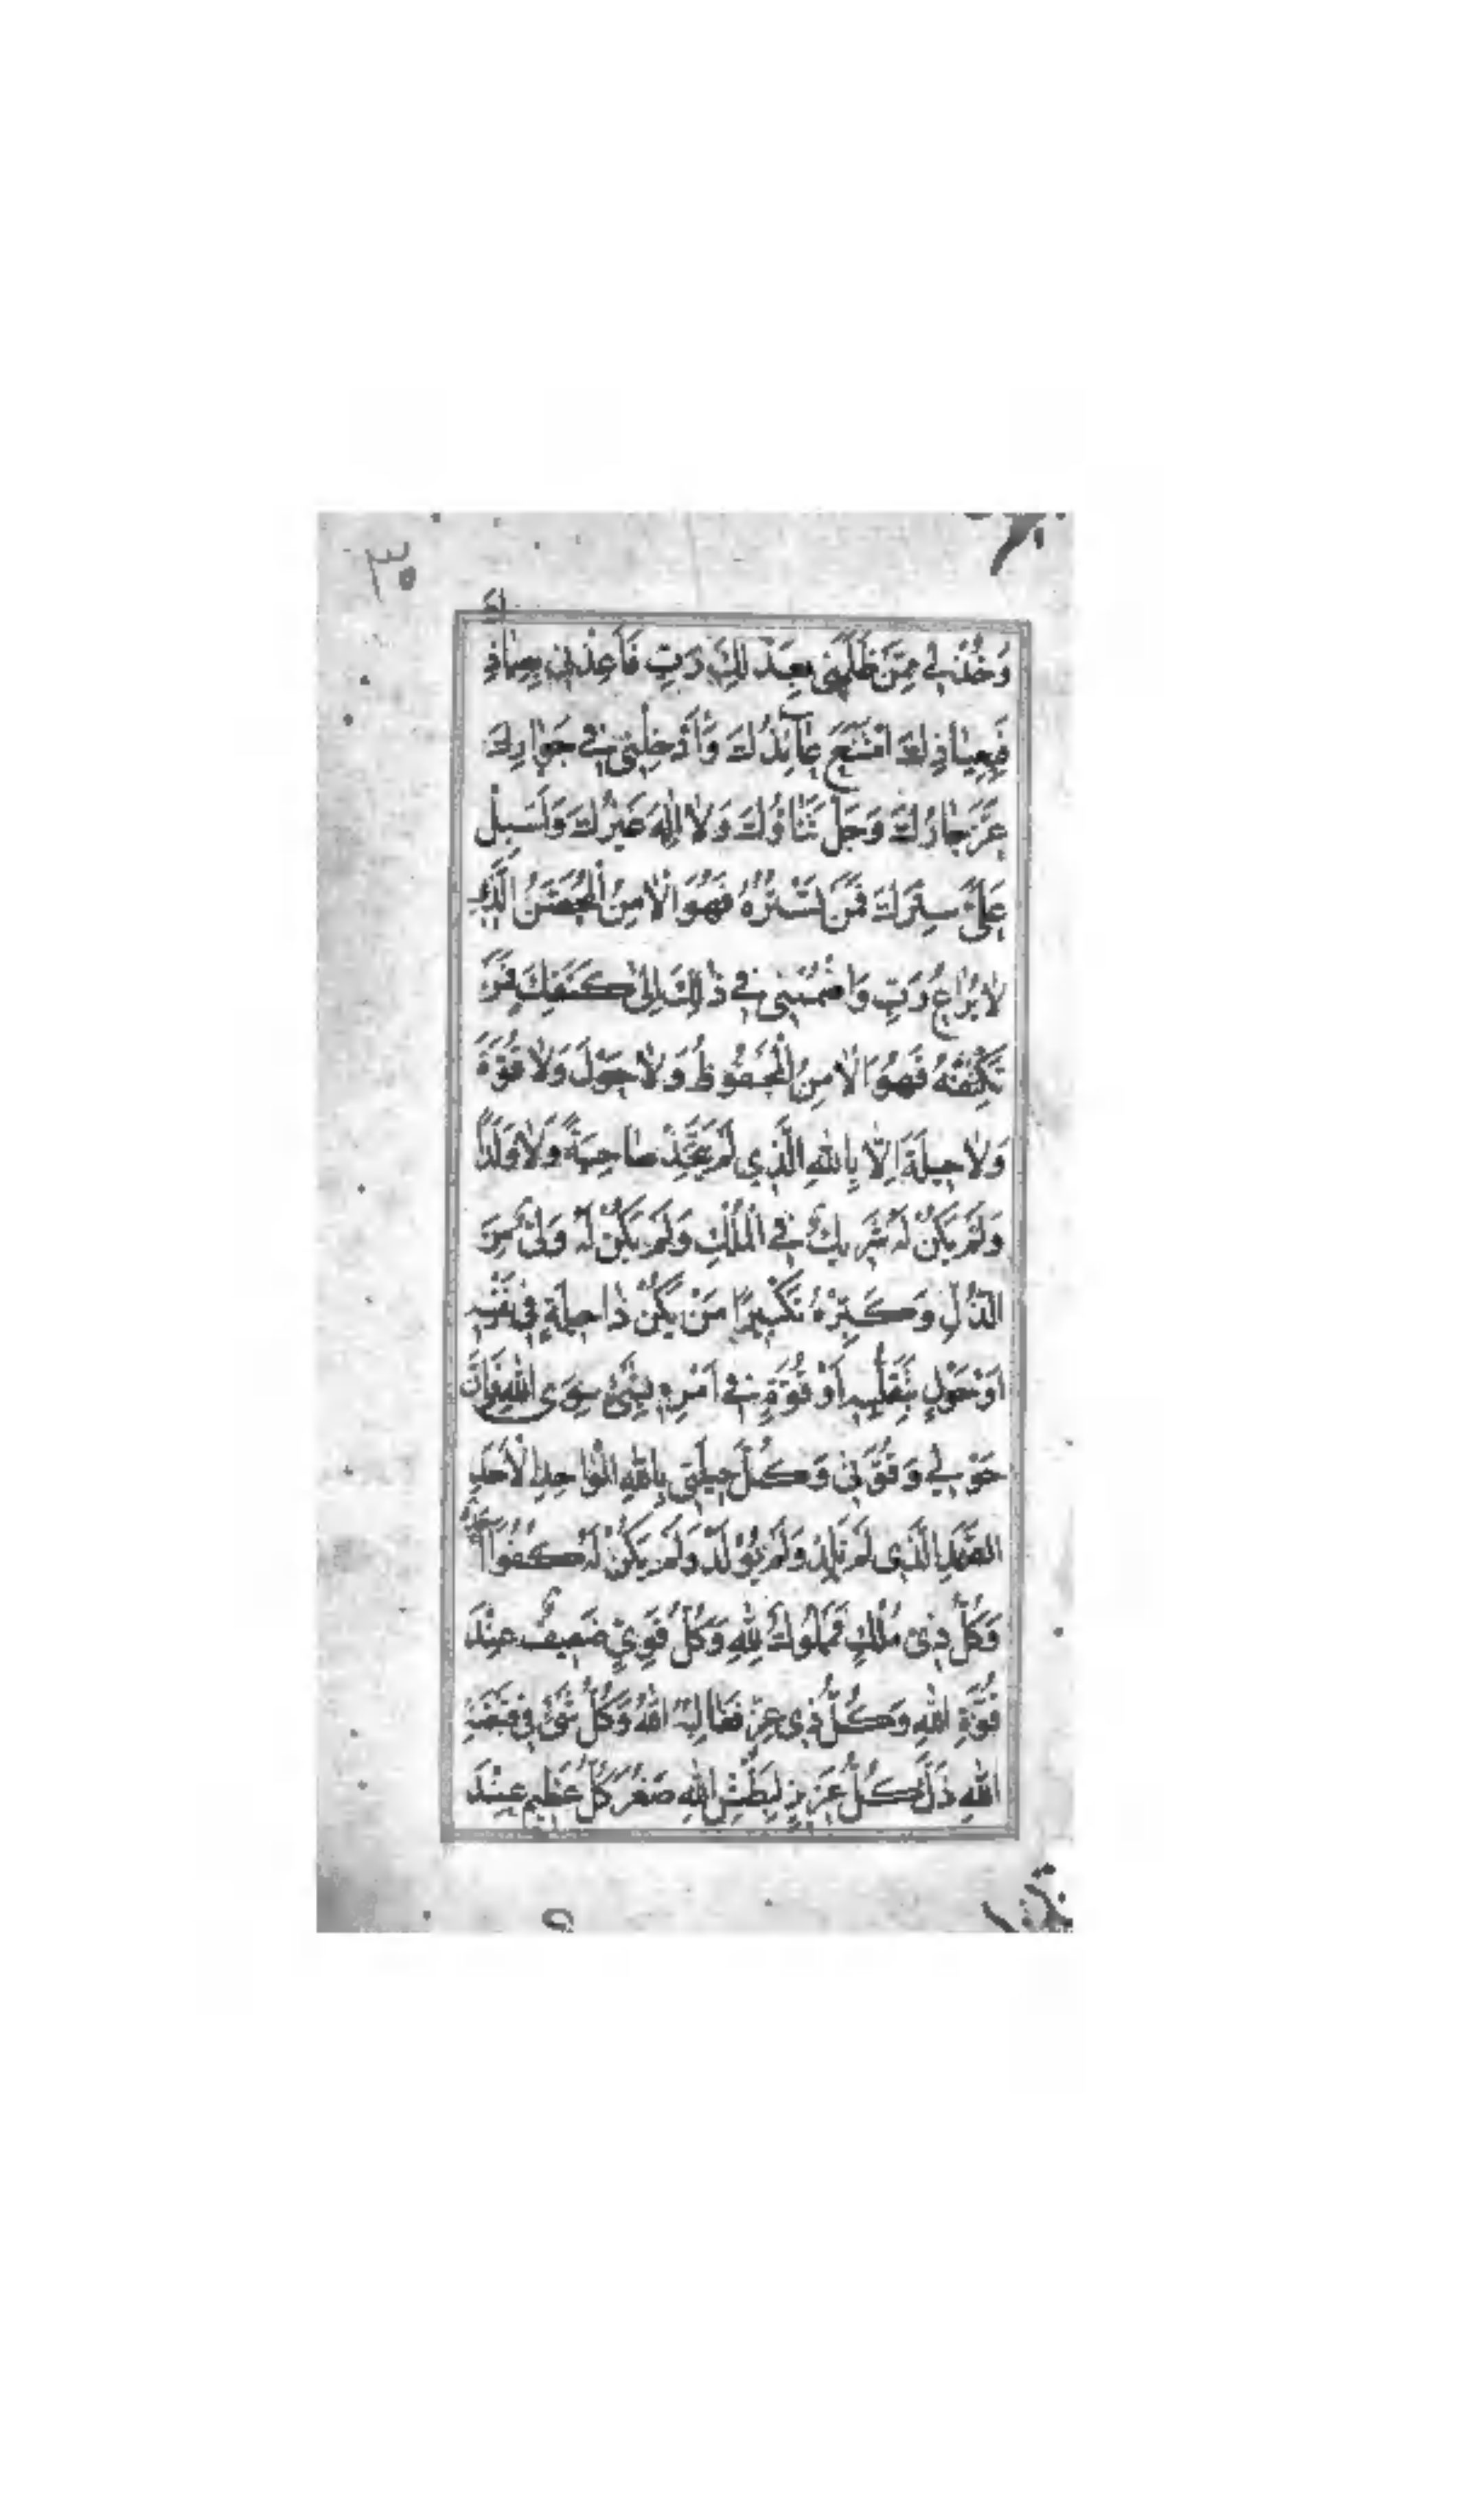 ٣٥
وَخُذْ لِي مِمَّنْ ظَلَمَنِي بَعْدَ ذٰلِكَ رَبِّ فَاَعِذْنِي بِعِيَاذِكَ
فَبِعِيَاذِكَ امْتَنَعَ عَآئِذُكَ وَاَدْخِلْنِي فِي جِوَارِكَ
عَزَّ جَارُكَ وَجَلَّ ثَنَاؤُكَ وَلَا اِلٰهَ غَيْرُكَ وَاَسْبِلْ
عَلَيَّ سِتْرَكَ فَمَنْ تَسْتُرُهُ فَهُوَ الْاٰمِنُ الْمُحَصَّنُ الَّذِي
لَا يُرَاعُ رَبِّ وَاضْمُمْنِي فِي ذٰلِكَ اِلٰى كَنَفِكَ فَمَنْ
تَكْنُفُهُ فَهُوَ الْاٰمِنُ الْمَحْفُوظُ وَلَا حَوْلَ وَلَا قُوَّةَ
وَلَا حِيلَةَ اِلَّا بِاللهِ الَّذِي لَمْ يَتَّخِذْ صَاحِبَةً وَلَا وَلَدًا
وَلَمْ يَكُنْ لَهُ شَرِيكٌ فِي الْمُلْكِ وَلَمْ يَكُنْ لَهُ وَلِيٌّ مِنَ
الذُّلِّ وَكَبِّرْهُ تَكْبِيرًا مَنْ يَكُنْ ذَا حِيلَةٍ فِي نَفْسِهِ
اَوْ حَوْلٍ بِتَقَلُّبِهِ اَوْ قُوَّةٍ فِي اَمْرِهِ بِشَيْءٍ سِوَى اللهِ فَاِنَّ
حَوْلِي وَقُوَّتِي وَكُلَّ حِيلَتِي بِاللهِ الْوَاحِدِ الْاَحَدِ
الصَّمَدِ الَّذِي لَمْ يَلِدْ وَلَمْ يُولَدْ وَلَمْ يَكُنْ لَهُ كُفُوًا اَحَدٌ
وَكُلُّ ذِي مُلْكٍ فَمَمْلُوكٌ لِلّٰهِ وَكُلُّ قَوِيٍّ ضَعِيفٌ عِنْدَ
قُوَّةِ اللهِ وَكُلُّ ذِي عِزٍّ فَغَالِبُهُ اللهُ وَكُلُّ شَيْءٍ فِي قَبْضَةِ
اللهِ ذَلَّ كُلُّ عَزِيزٍ لِبَطْشِ اللهِ صَغُرَ كُلُّ عَظِيمٍ عِنْدَ